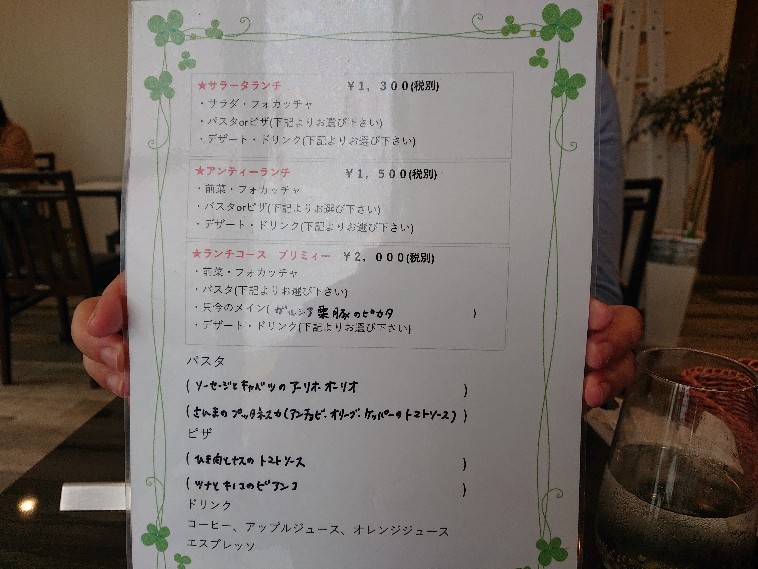 ★サラータランチ ¥1,300(税別)
・サラダ・フォカッチャ
・パスタorピザ(下記よりお選び下さい)
・デザート・ドリンク(下記よりお選び下さい)
★アンティーランチ ¥1,500(税別)
・前菜・フォカッチャ
・パスタorピザ(下記よりお選び下さい)
・デザート・ドリンク(下記よりお選び下さい)
★ランチコース プリミィー ¥2,000(税別)
・前菜・フォカッチャ
・パスタ(下記よりお選び下さい)
・只今のメイン( ガルシア栗豚のピカタ )
・デザート・ドリンク(下記よりお選び下さい)
パスタ
( ソーセージとキャベツのアーリオオーリオ )
( さんまのプッタネスカ(アンチョビ・オリーブ・ケッパーのトマトソース) )
ピザ
( ひき肉とナスのトマトソース )
( ツナとキノコのビアンコ )
ドリンク
コーヒー、アップルジュース、オレンジジュース
エスプレッソ